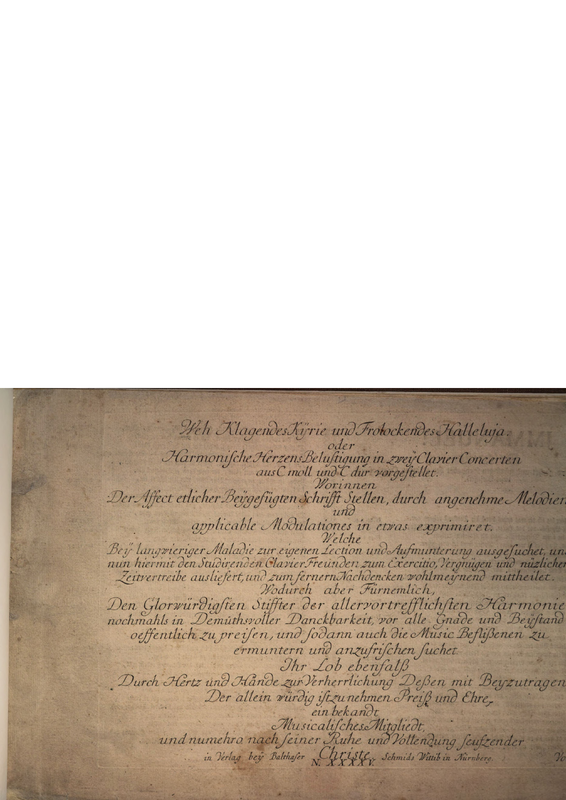 Weh Klagendes Kÿrie und Frolockendes Halleluja.
oder
Harmonische Herzens Belustigung in zweÿ Clavier Concerten
aus C moll und C dur vorgestellet.
Worinnen
Der Affect etlicher Beÿgefügten Schrifft Stellen, durch angenehme Melodien
und
applicable Modulationes in etwas exprimiret.
Welche
Beÿ langwieriger Maladie zur eigenen Lection und Aufmunterung ausgesuchet, un
nun hiermit den Studirenden Clavier Freünden zum Exercitio, Vergnügen und nüzlichen
Zeitvertreibe ausliefert, und zum fernern Nachdencken wohlmeynend mittheilet.
Wodurch aber Fürnemlich,
Den Glorwürdigsten Stiffter der allervortrefflichsten Harmonie
nochmahls in Demüthsvoller Danckbarkeit, vor alle Gnade und Beÿstand
oeffentlich zu preisen, und sodann auch die Music Beflißenen zu
ermuntern und anzufrischen suchet
Ihr Lob ebenfalß
Durch Hertz und Hände zur Verherrlichung Deßen mit Beyzutragen
Der allein würdig ist zu nehmen Preiß und Ehre,
ein bekandt
Musicalisches Mitgliedt,
und numehro nach seiner Ruhe und Vollendung seufzender
Christe
in Verlag beÿ Balthaser Schmids Wittib in Nürnberg.
N. XXXXV.